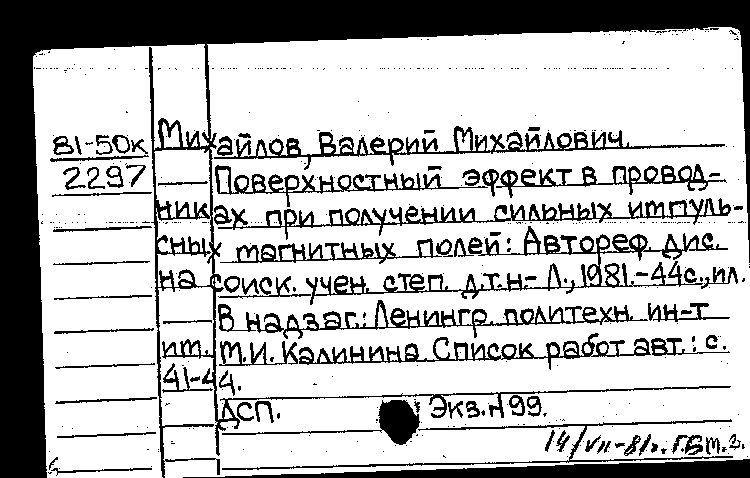 81-50к Михайлов, Валерий Михайлович.
2297 Поверхностный эффект в провод-
никах при получении сильных импуль-
сных магнитных полей: Автореф. дис.
на соиск. учен. степ. д.т.н.- Л., 1981.-44с., ил.
В надзаг.: Ленингр. политехн. ин-т
им. М.И. Калинина. Список работ авт.: с.
41-44.
ДСП. Экз.№99.
14/VII-81г.